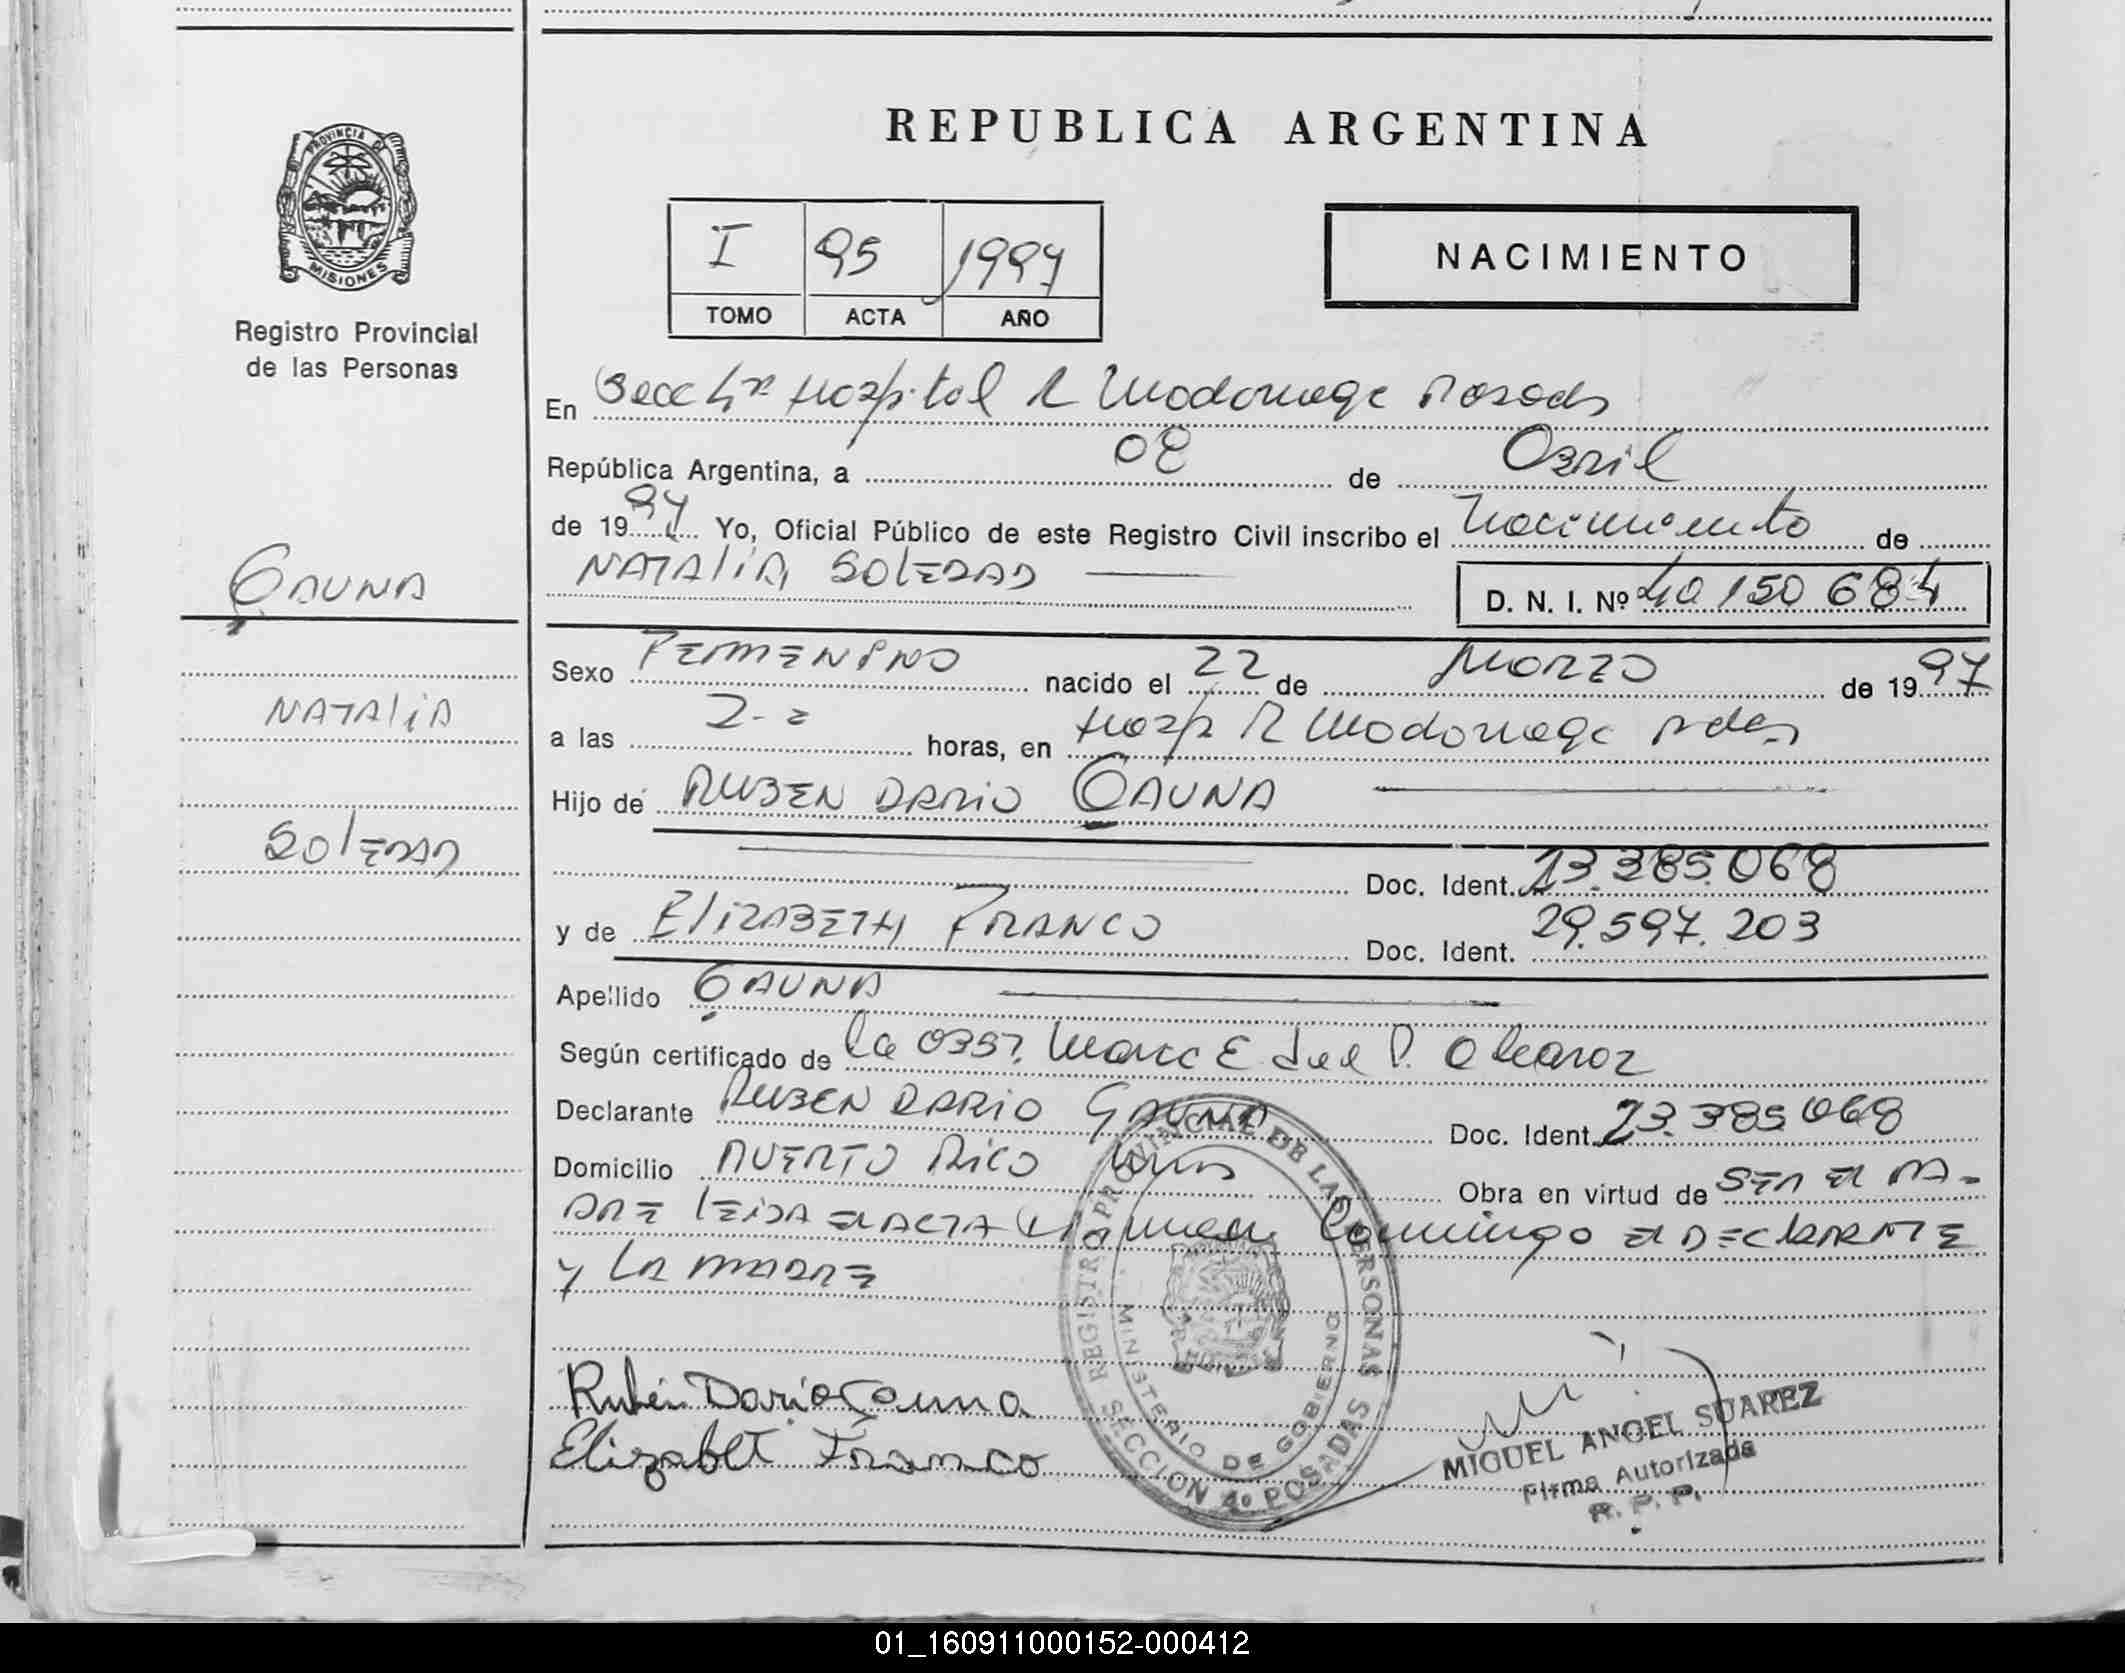 REPUBLICA ARGENTINA
PROVINCIA DE
MISIONES
Registro Provincial
de las Personas
I 95 1997
TOMO ACTA AÑO
NACIMIENTO
En Secc 4ta Hospital R Madariaga Posadas
República Argentina, a 08 de Abril
de 1997 Yo, Oficial Público de este Registro Civil inscribo el Nacimiento de
NATALIA SOLEDAD
D. N. I. Nº 40 150 684
GAUNA
NATALIA
SOLEDAD
Sexo FEMENINO nacido el 22 de Marzo de 1997
a las 2 horas, en Hosp R Madariaga Pdas
Hijo de RUBEN DARIO GAUNA
Doc. Ident. 23.385.068
y de ELIZABETH FRANCO Doc. Ident. 29.597.203
Apellido GAUNA
Según certificado de la Obst. P. Alcaraz
Declarante RUBEN DARIO GAUNA Doc. Ident. 23.385.068
Domicilio PUERTO RICO Mnes Obra en virtud de SER EL PA-
DRE LEIDA EL ACTA Firman Conmigo EL DECLARANTE
y LA MADRE
Rubén Dario Gauna
Elizabet Franco
REGISTRO PROVINCIAL DE LAS PERSONAS
MINISTERIO DE GOBIERNO
SECCION 4º POSADAS
MIGUEL ANGEL SUAREZ
Firma Autorizada
R. P. P.
01_160911000152-000412